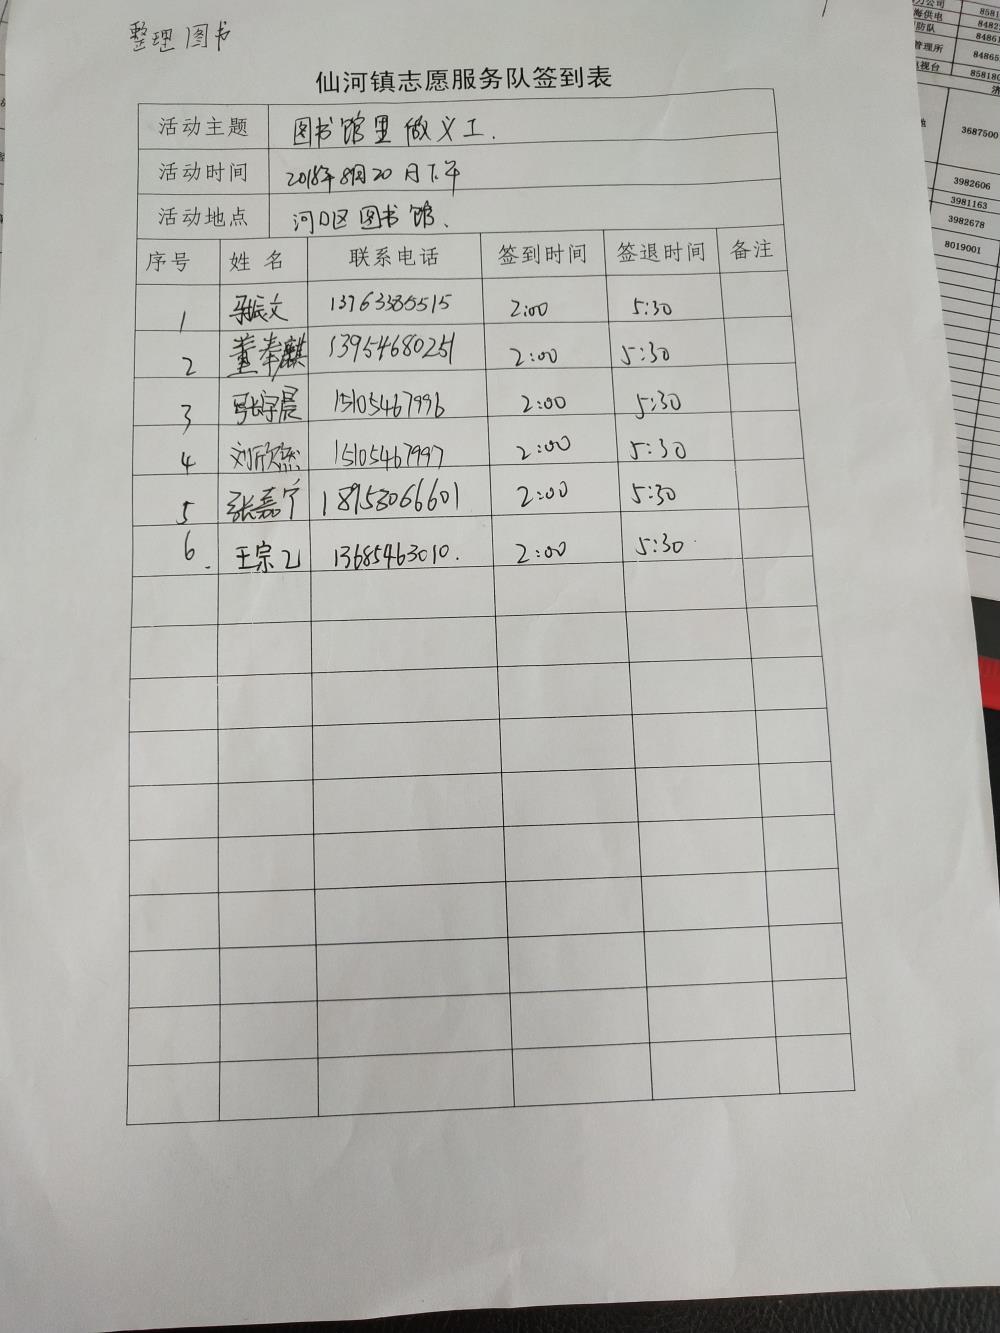 整理图书
仙河镇志愿服务队签到表
活动主题 图书馆里做义工.
活动时间 2018年8月20日下午
活动地点 河口区图书馆、
序号 姓名 联系电话 签到时间 签退时间 备注
1 张振文 13763385515 2:00 5:30
2 董奉麒 13954680251 2:00 5:30
3 张宇晨 15105467996 2:00 5:30
4 刘欣然 15105467997 2:00 5:30
5 张嘉宁 18953066601 2:00 5:30
6. 王宗乙 13685463010. 2:00 5:30
力公司 8581
海供电 8482
防队 84861
管理所 84865
电视台 858180
3687500
3982606
3981163
3982678
8019001